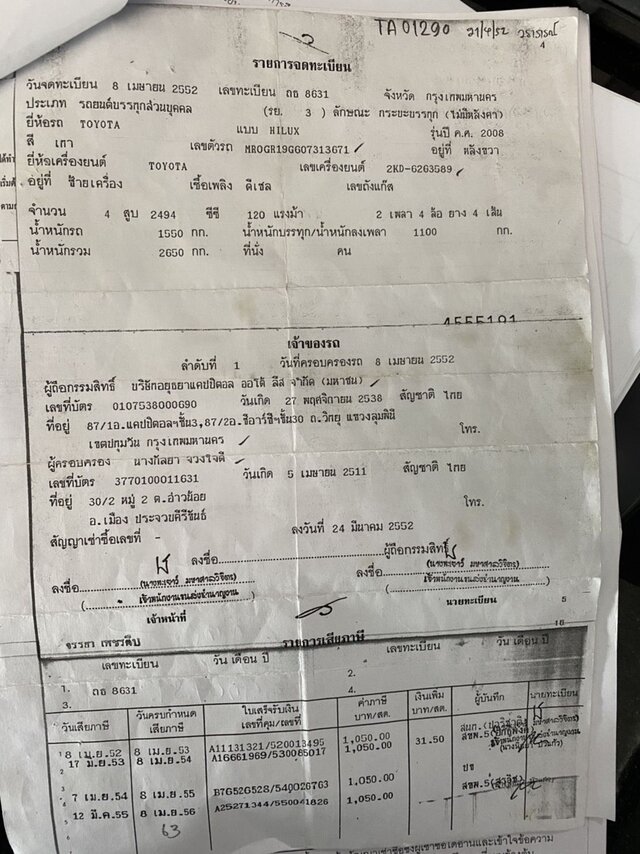 TA01290 21/4/52 วราภรณ์
4
รายการจดทะเบียน
วันจดทะเบียน 8 เมษายน 2552 เลขทะเบียน ถธ 8631 จังหวัด กรุงเทพมหานคร
ประเภท รถยนต์บรรทุกส่วนบุคคล (รย. 3 ) ลักษณะ กระบะบรรทุก (ไม่มีหลังคา)
ยี่ห้อรถ TOYOTA แบบ HILUX รุ่นปี ค.ศ. 2008
สี เทา เลขตัวรถ MR0GR19G607313671 อยู่ที่ หลังขวา
ยี่ห้อเครื่องยนต์ TOYOTA เลขเครื่องยนต์ 2KD-6263589
อยู่ที่ ซ้ายเครื่อง เชื้อเพลิง ดีเซล เลขถังแก๊ส
จำนวน 4 สูบ 2494 ซีซี 120 แรงม้า 2 เพลา 4 ล้อ ยาง 4 เส้น
น้ำหนักรถ 1550 กก. น้ำหนักบรรทุก/น้ำหนักลงเพลา 1100 กก.
น้ำหนักรวม 2650 กก. ที่นั่ง คน
4555191
เจ้าของรถ
ลำดับที่ 1 วันที่ครอบครองรถ 8 เมษายน 2552
ผู้ถือกรรมสิทธิ์ บริษัทอยุธยาแคปปิตอล ออโต้ ลีส จำกัด (มหาชน)
เลขที่บัตร 0107538000690 วันเกิด 27 พฤศจิกายน 2538 สัญชาติ ไทย
ที่อยู่ 87/1อ.แคปปิตอลฯชั้น3,87/2อ.ซีอาร์ซีฯชั้น30 ถ.วิทยุ แขวงลุมพินี
เขตปทุมวัน กรุงเทพมหานคร โทร.
ผู้ครอบครอง นางกัลยา จวงใจดี
เลขที่บัตร 3770100011631 วันเกิด 5 เมษายน 2511 สัญชาติ ไทย
ที่อยู่ 30/2 หมู่ 2 ต.อ่าวน้อย โทร.
อ.เมือง ประจวบคีรีขันธ์
สัญญาเช่าซื้อเลขที่ - ลงวันที่ 24 มีนาคม 2552
ลงชื่อ ผู้ถือกรรมสิทธิ์
ลงชื่อ ลงชื่อ
เจ้าหน้าที่ นายทะเบียน 5
รายการเสียภาษี 16
เลขทะเบียน วัน เดือน ปี เลขทะเบียน วัน เดือน ปี
1. ถธ 8631 2.
3. 4.
วันเสียภาษี วันครบกำหนดเสียภาษี ใบเสร็จรับเงิน เลขที่คุม/เลขที่ ค่าภาษี บาท/สต. เงินเพิ่ม บาท/สต. ผู้บันทึก นายทะเบียน
8 เม.ย.52 8 เม.ย.53 A11131321/520013495 1,050.00
17 มี.ย.53 8 เม.ย.54 A16661969/530065017 1,050.00 31.50
7 เม.ย.54 8 เม.ย.55 B7G52G528/540026763 1,050.00
12 มี.ค.55 8 เม.ย.56 A25271344/550041826 1,050.00
63